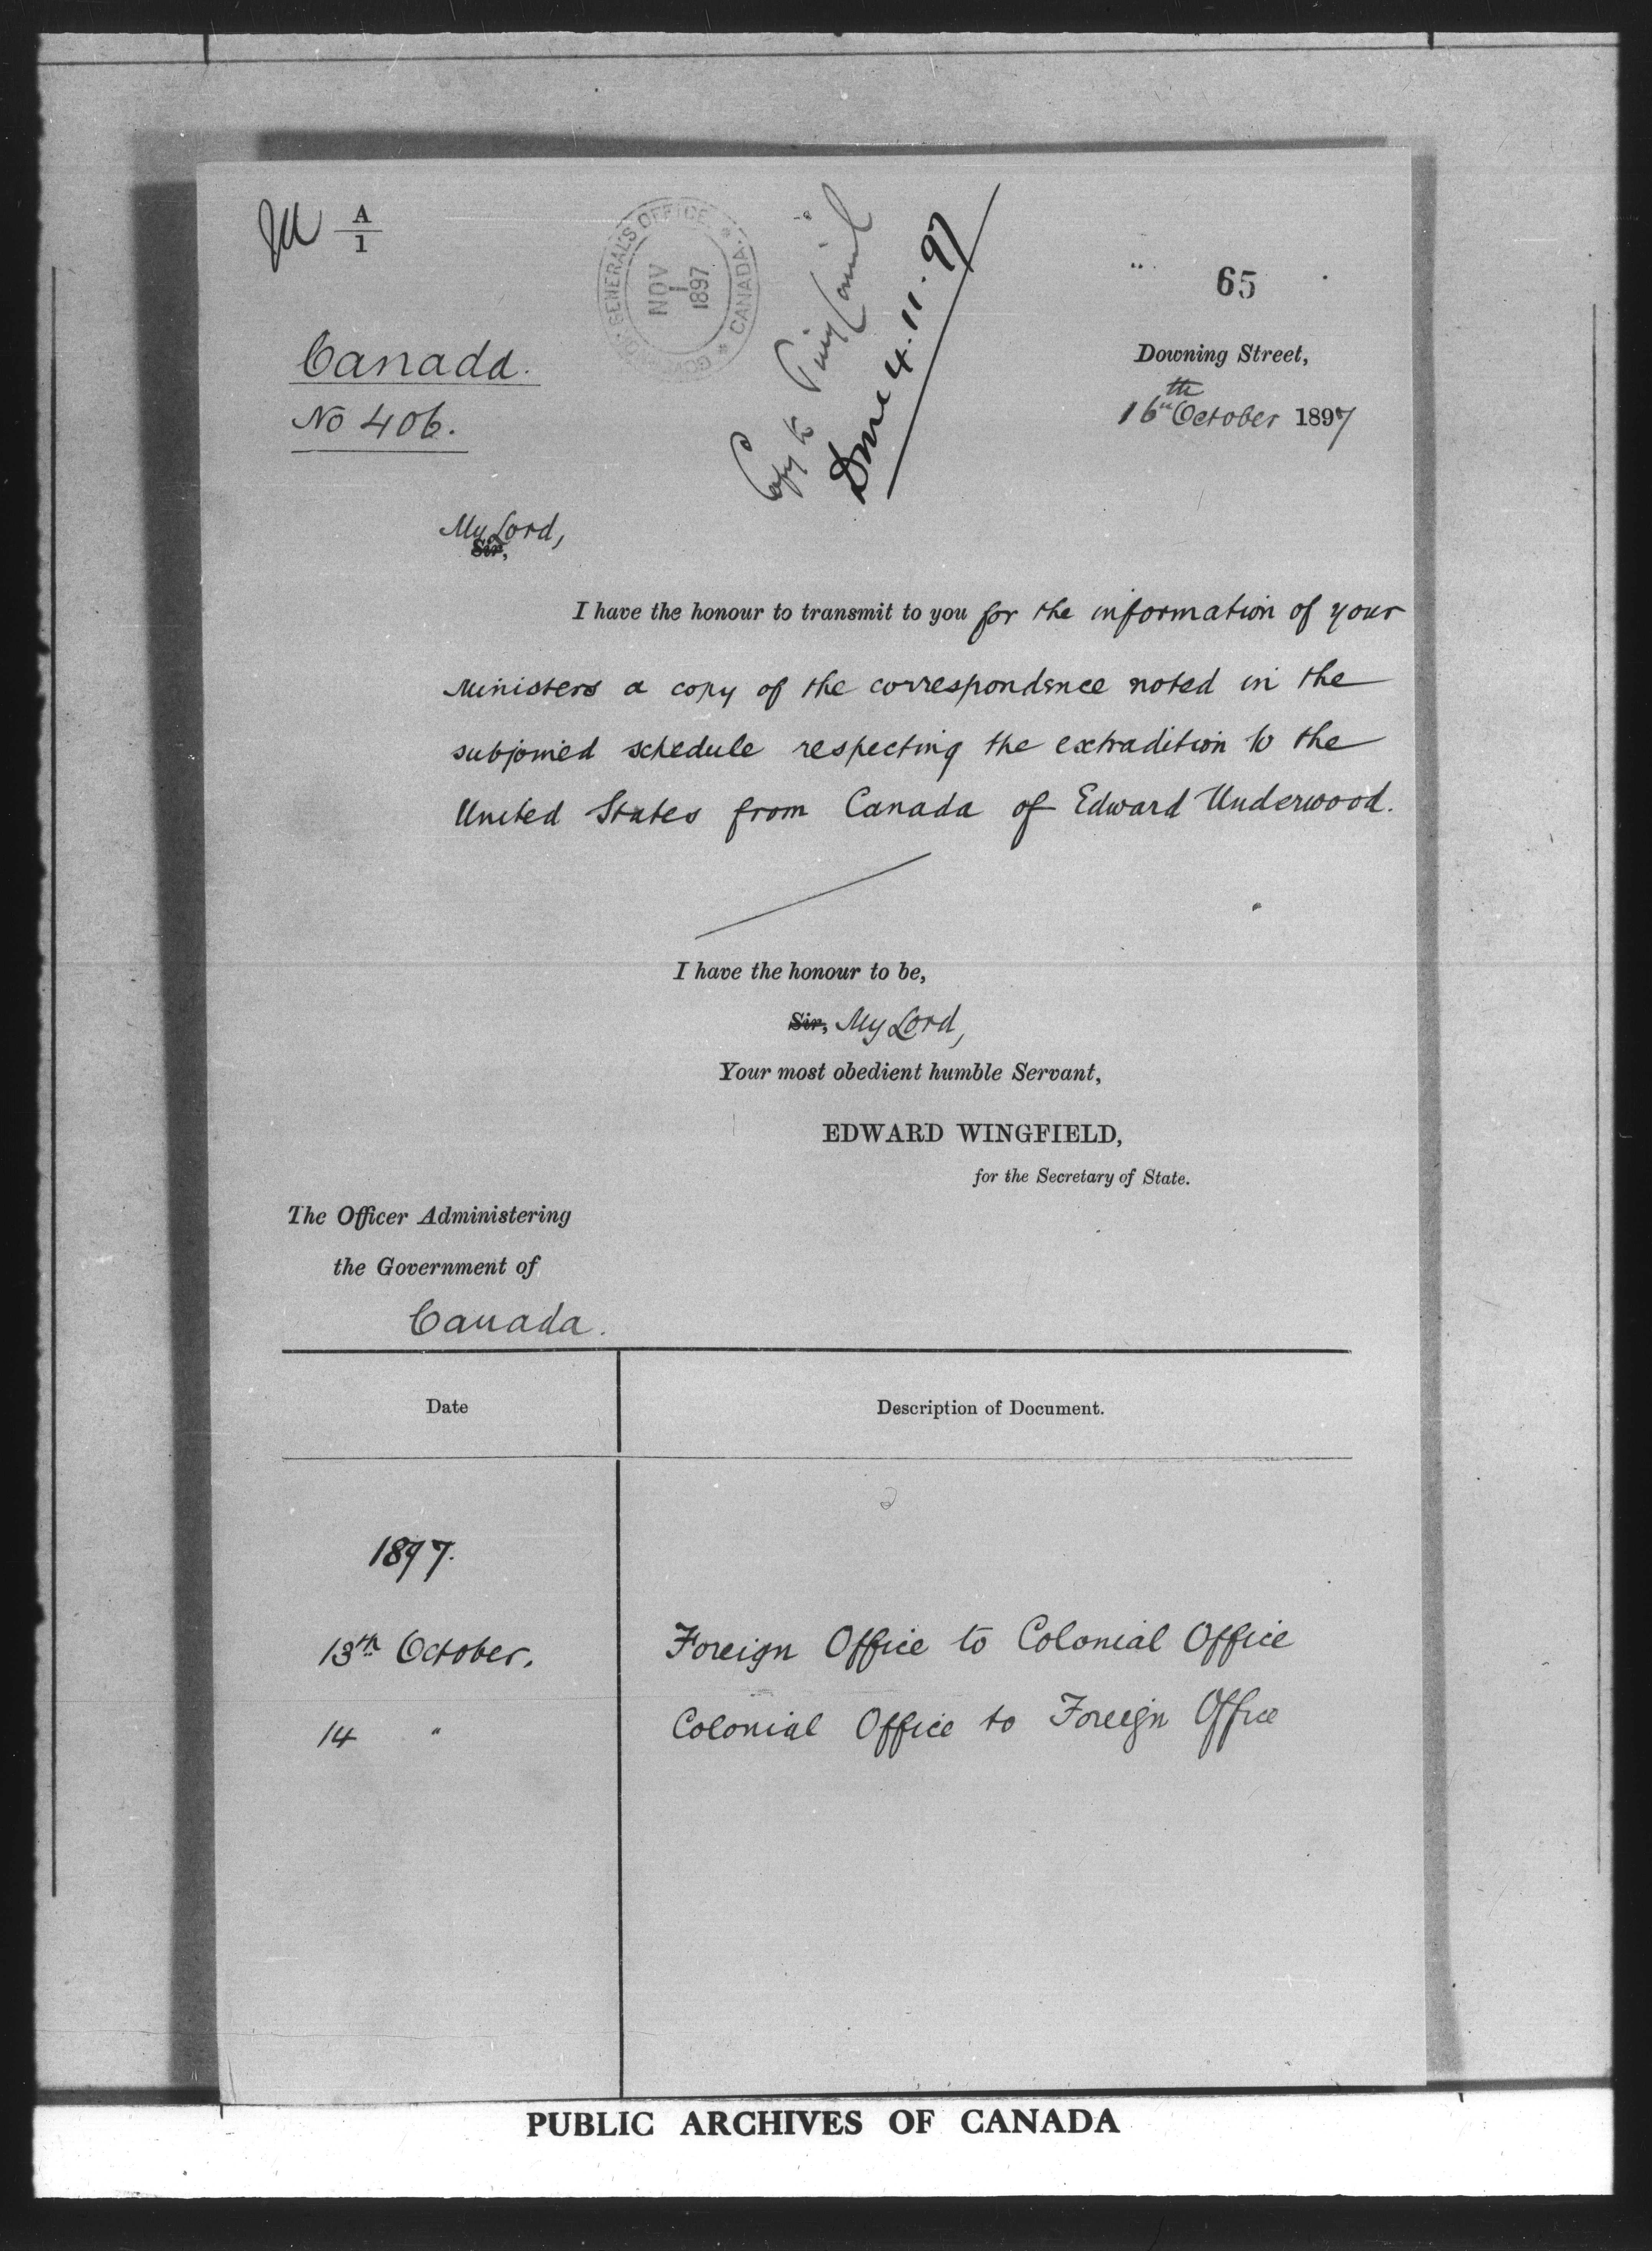 A
1
GOVERNOR GENERAL'S OFFICE * CANADA *
NOV
1
1897
Copy to Privy Council
Done 4.11.97
65
Canada.
No 406.
Downing Street,
16th October 1897
My Lord,
Sir,
I have the honour to transmit to you for the information of your
Ministers a copy of the correspondence noted in the
subjoined schedule respecting the extradition to the
United States from Canada of Edward Underwood.
I have the honour to be,
Sir, My Lord,
Your most obedient humble Servant,
EDWARD WINGFIELD,
for the Secretary of State.
The Officer Administering
the Government of
Canada.
Date
Description of Document.
1897.
13th October.
Foreign Office to Colonial Office
14 "
Colonial Office to Foreign Office
PUBLIC ARCHIVES OF CANADA